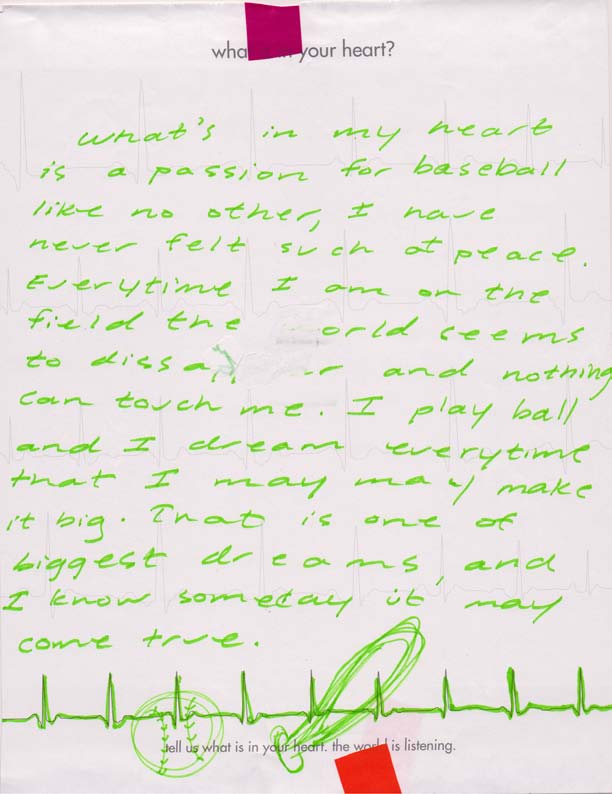 what's in your heart?
what's in my heart
is a passion for baseball
like no other, I have
never felt such at peace.
Everytime I am on the
field the orld seems
to and nothing
can touch me. I play ball
and I dream everytime
that I may may make
it big. That is one of
biggest dreams, and
I know someday it may
come true.
tell us what is in your heart. the world is listening.